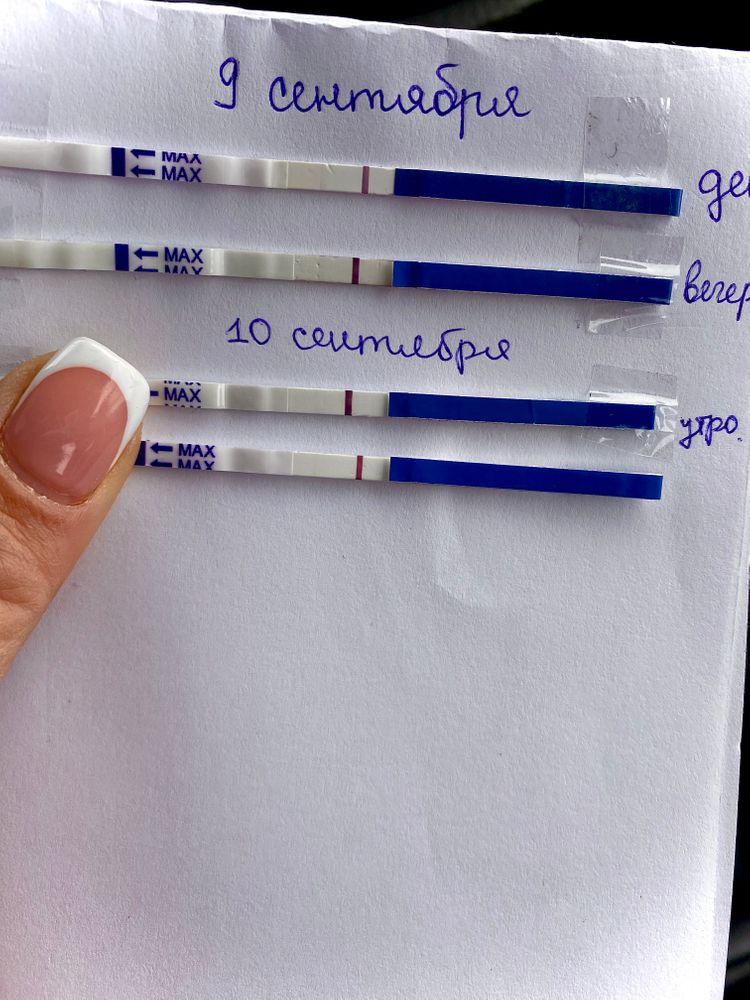 9 сентября
MAX
MAX
ден
MAX
MAX
вечер
10 сентября
MAX
MAX
утро.
MAX
MAX